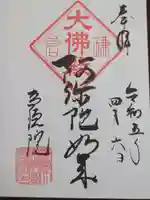 奉拝
令和五年
四月六日
大佛殿
阿弥陀如来
高徳院